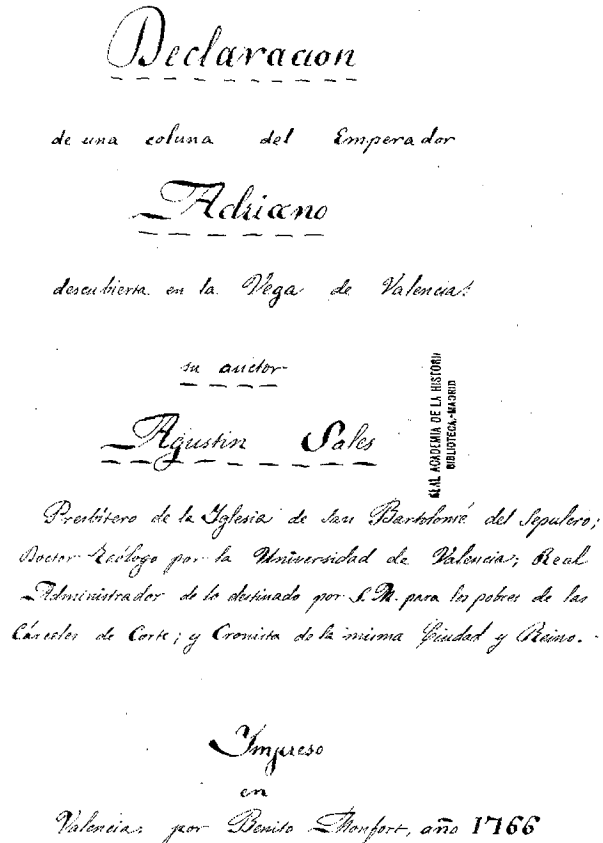 Declaracion
de una coluna del Emperador
Adriano
descubierta en la Vega de Valencia:
su auctor
Agustin Sales
REAL ACADEMIA DE LA HISTORIA
BIBLIOTECA-MADRID
Presbitero de la Iglesia de San Bartolomé del Sepulcro;
Doctor Teólogo por la Universidad de Valencia; Real
Administrador de lo destinado por S. M. para los pobres de las
Cárceles de Corte; y Cronista de la misma Ciudad y Reino.
Impreso
en
Valencia por Benito Monfort, año 1766